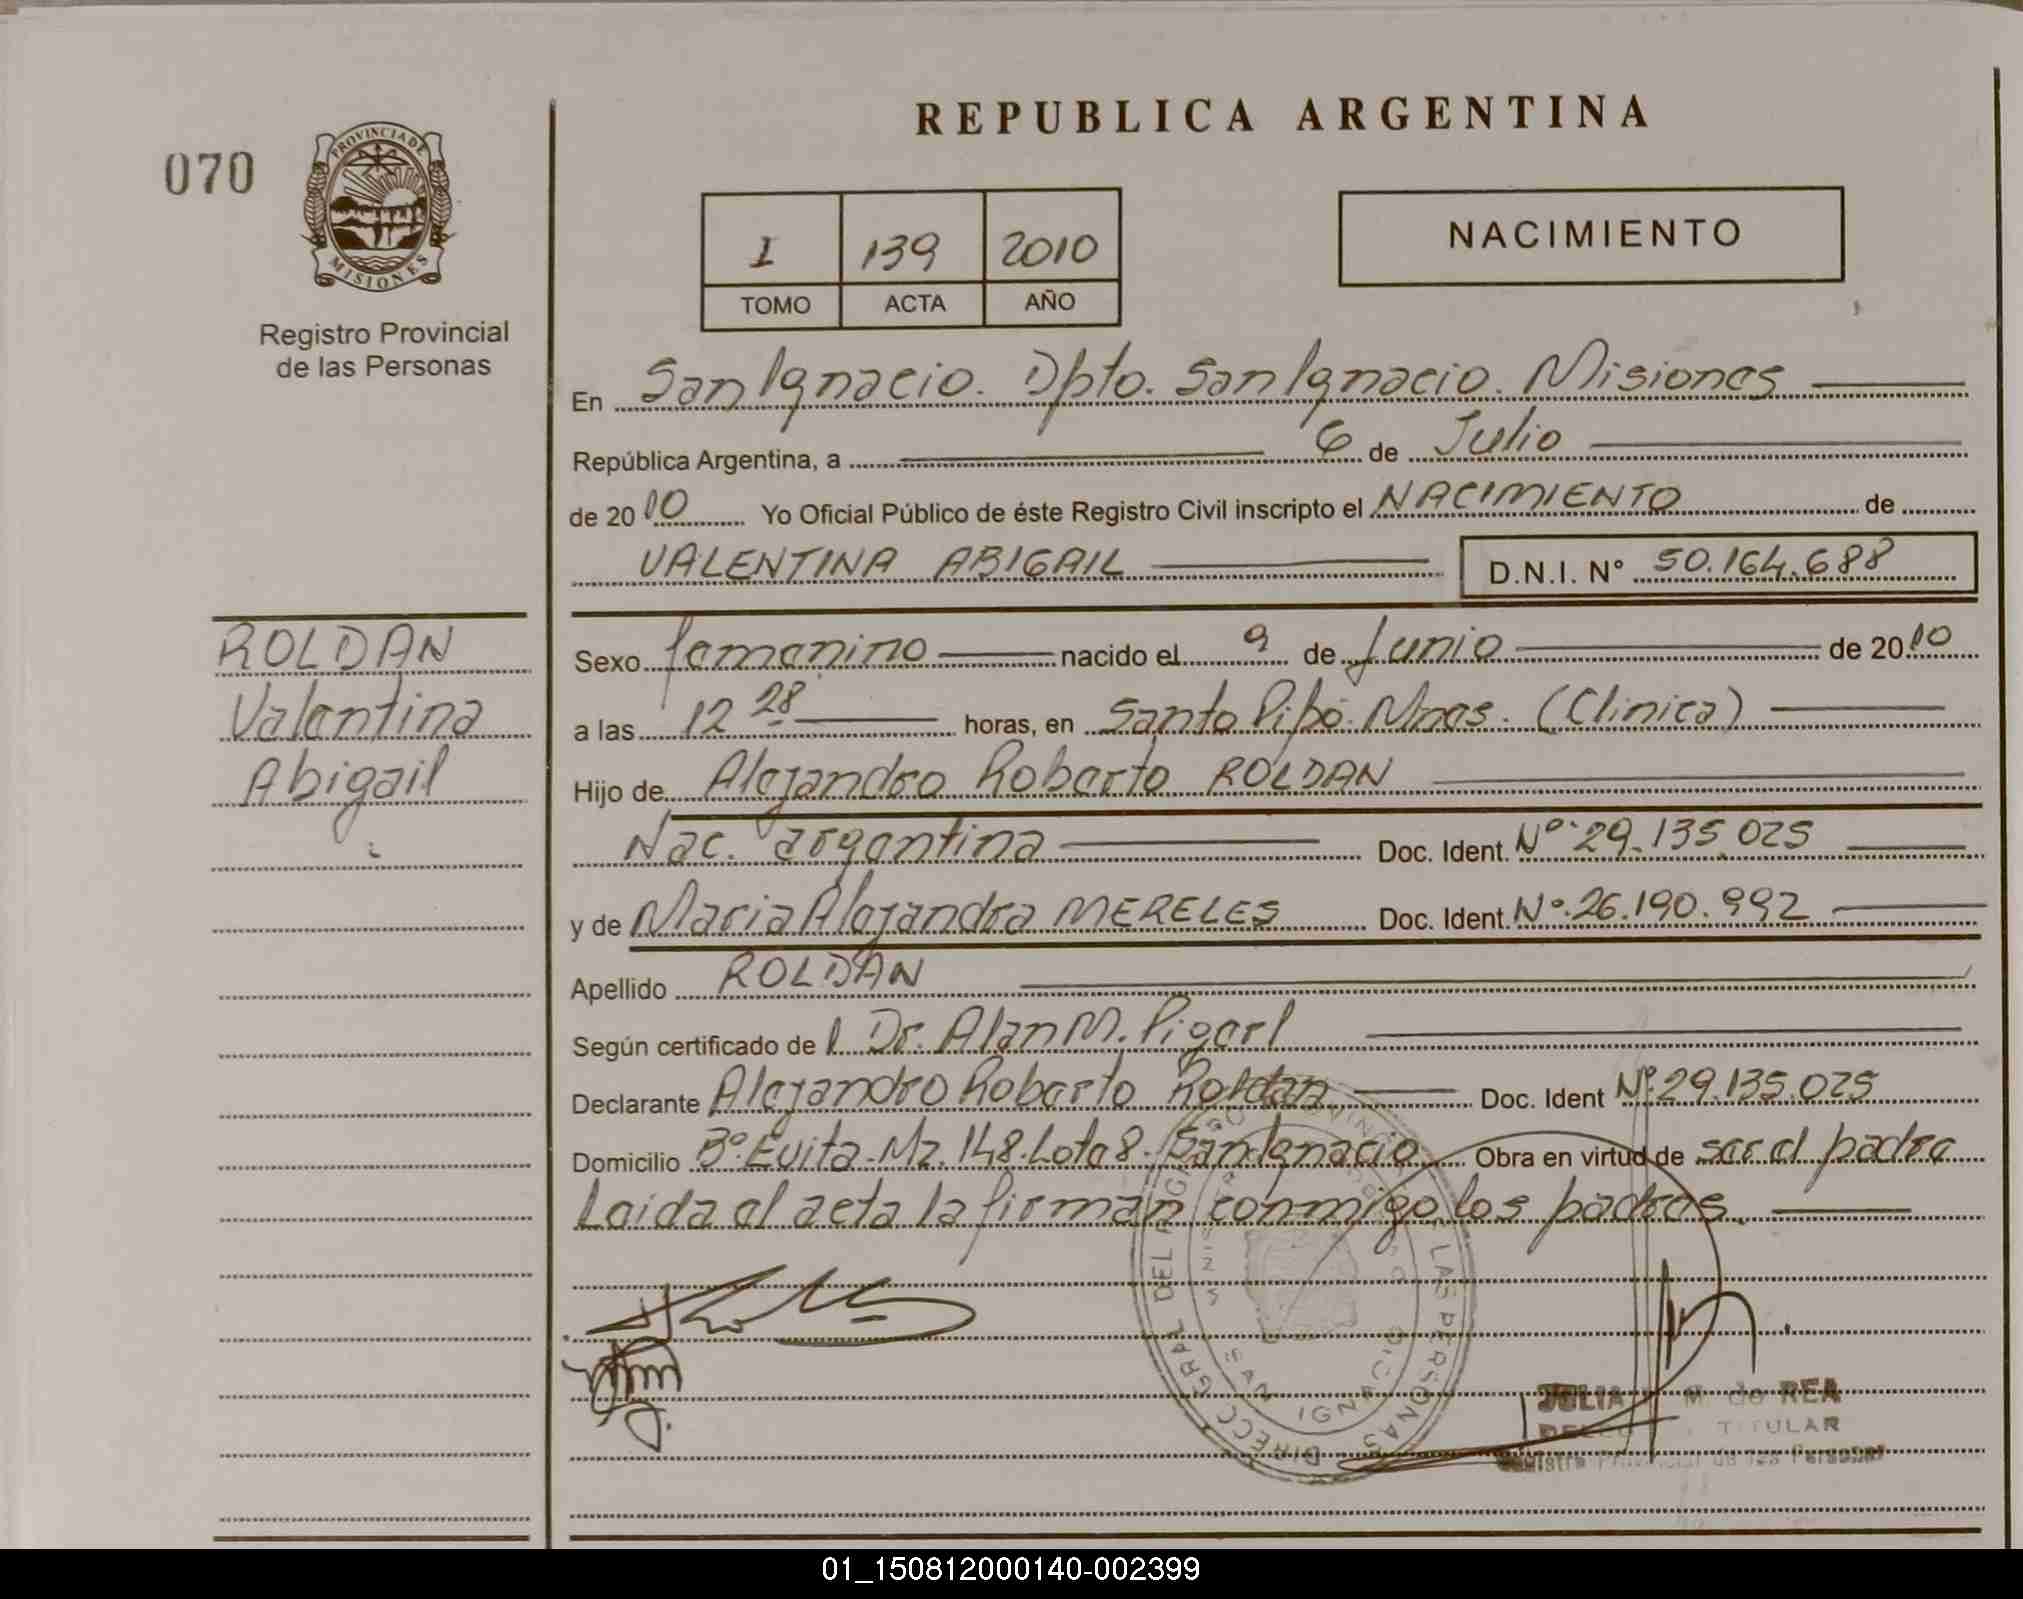 REPUBLICA ARGENTINA
070
PROVINCIA DE MISIONES
Registro Provincial
de las Personas
I 139 2010
TOMO ACTA AÑO
NACIMIENTO
En San Ignacio. Dpto. San Ignacio. Misiones
República Argentina, a 6 de Julio
de 2010 Yo Oficial Público de éste Registro Civil inscripto el NACIMIENTO de
VALENTINA ABIGAIL D.N.I. Nº 50.164.688
ROLDAN
Valentina
Abigail
Sexo femenino nacido el 9 de Junio de 2010
a las 12 28 horas, en Santo Pipó. Mnes. (Clinica)
Hijo de Alejandro Roberto ROLDAN
Nac. argentina Doc. Ident. Nº 29.135.025
y de Maria Alejandra MERELES Doc. Ident. Nº 26.190.992
Apellido ROLDAN
Según certificado del Dr. Alan M.
Declarante Alejandro Roberto Roldan Doc. Ident Nº 29.135.025
Domicilio Bº Evita-Mz. 148. Lote 8. San Ignacio Obra en virtud de ser el padre
Leida el acta la firman conmigo los padres.
DIRECC. GRAL. DEL REGISTRO PROVINCIAL DE LAS PERSONAS
SAN IGNACIO
JULIA M. de REA
TITULAR
Registro Provincial de las Personas
01_150812000140-002399